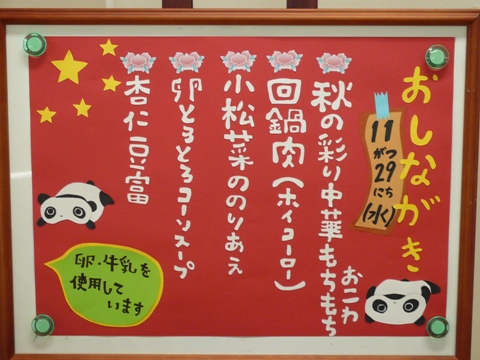 おしながき
11
がつ
29
にち
(水)
秋の彩り中華もちもち
おこわ
回鍋肉(ホイコーロー)
小松菜ののりあえ
卵とろとろコーンスープ
杏仁豆富
卵・牛乳を
使用して
います